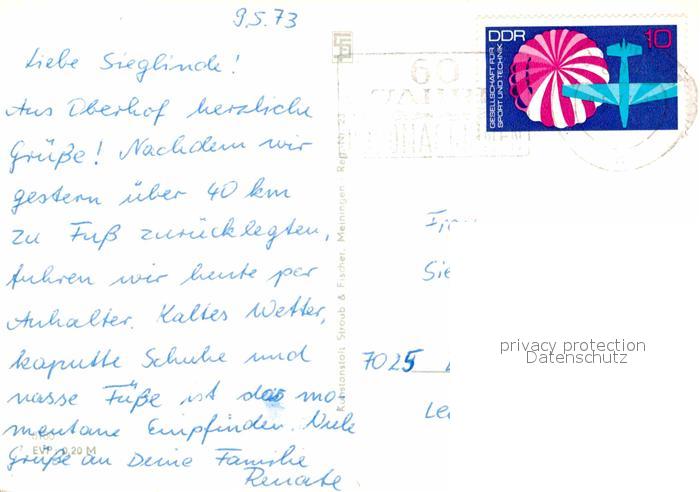 9.5.73
Liebe Sieglinde!
Aus Oberhof herzliche
Grüße! Nachdem wir
gestern über 40 km
zu Fuß zurücklegten,
fuhren wir heute per
Anhalter. Kaltes Wetter,
kaputte Schuhe und
nasse Füße ist das mo-
mentane Empfinden. Viele
Grüße an Deine Familie
Renate
EVP 0,20 M
Kunstanstalt Straub & Fischer, Meiningen
DDR 10
GESELLSCHAFT FÜR
SPORT UND TECHNIK
60
Sie
7025
Le
privacy protection
Datenschutz